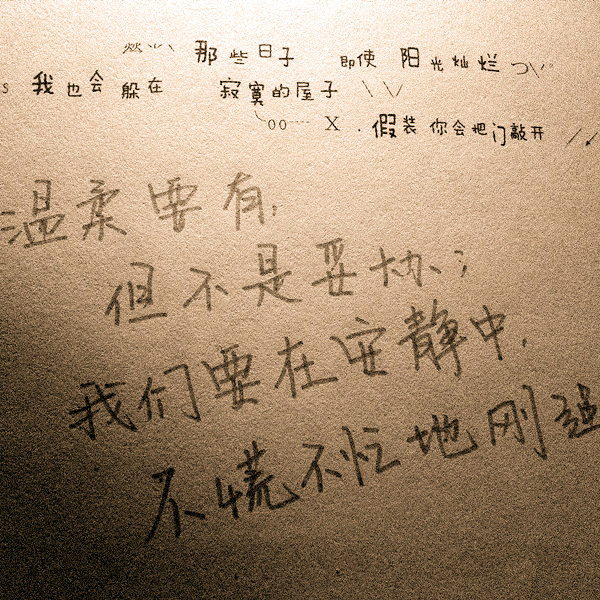 那些日子 即使 阳光灿烂
我也会 躲在 寂寞的屋子
X . 假装 你会把门敲开
温柔要有,
但不是妥协;
我们要在安静中,
不慌不忙地刚强